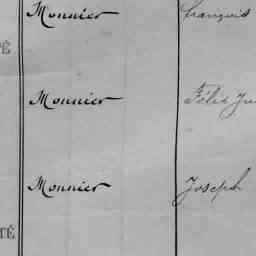 Monnier François
TÉ
Monnier Félix Ju
Monnier Joseph
TÉ